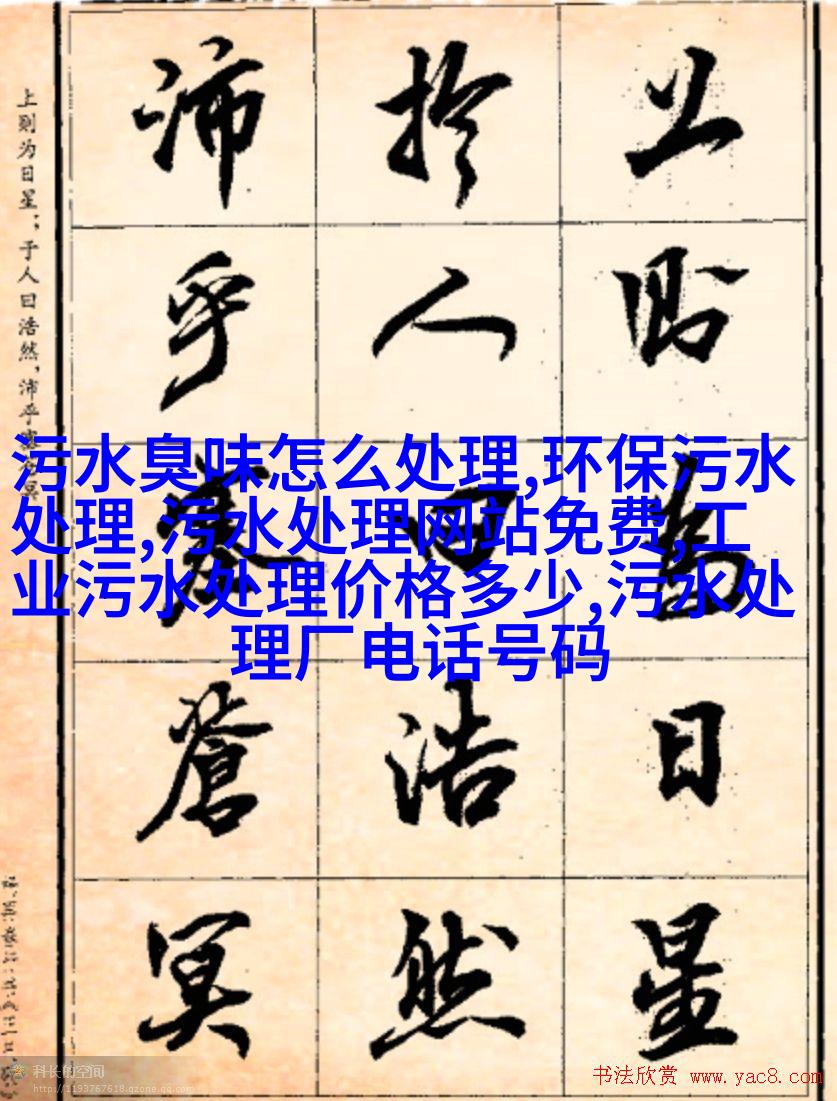 上則為日星
於人曰浩然
沛乎塞蒼冥
上则为日星；于人曰浩然，沛乎塞苍冥
污水臭味怎么处理,环保污水
处理,污水处理网站免费,工
业污水处理价格多少,污水处
理厂电话号码
科长的空间
http://1193767618.qzone.qq.com
书法欣赏 www.yac8.com